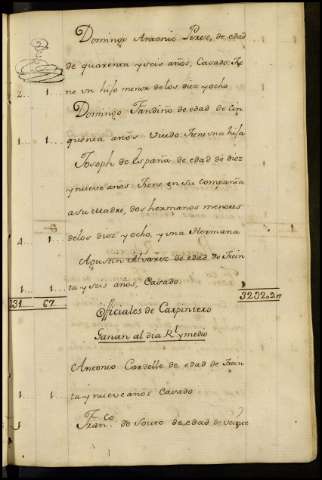 Domingo Antonio Perez, de edad
de quarenta y seis años, Casado. Tie
2 1 ne un hijo menor de los diez y ocho
Domingo Fandino de edad de cin
1 1 quenta años Viudo. Tiene una hija
Joseph de España de edad de diez
y nueve años. Tiene en su Compañia
a su Madre, dos hermanos menores
de los diez y ocho, y una Hermana
Agustin Alvarez de edad de trein
4 1 ta y seis años, Casado.
131 67 3202
Officiales de Carpintero
Ganan al dia Rl. y medio
Antonio Cardelle de edad de trein
1 1 ta y nueve años Casado
Franco. de Souto de edad de veinte